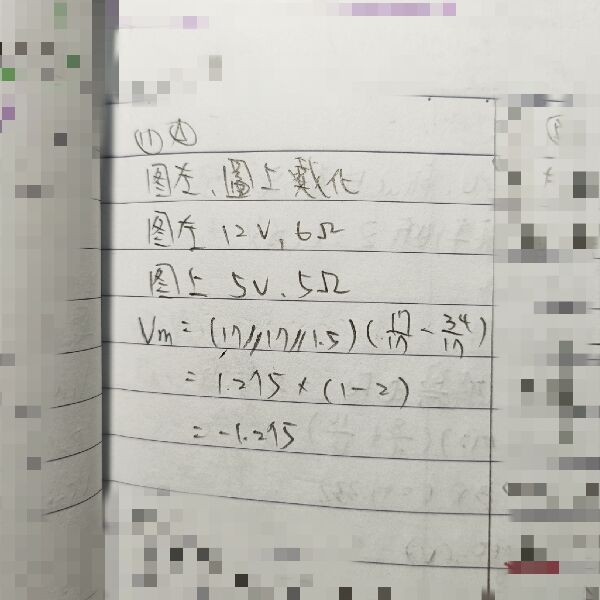 (1) (4)
图左、圖上戴化
图左 12V、6Ω
图上 5V、5Ω
Vm = (17//17//1.5)(17/17 - 34/17)
= 1.275 × (1-2)
= -1.275